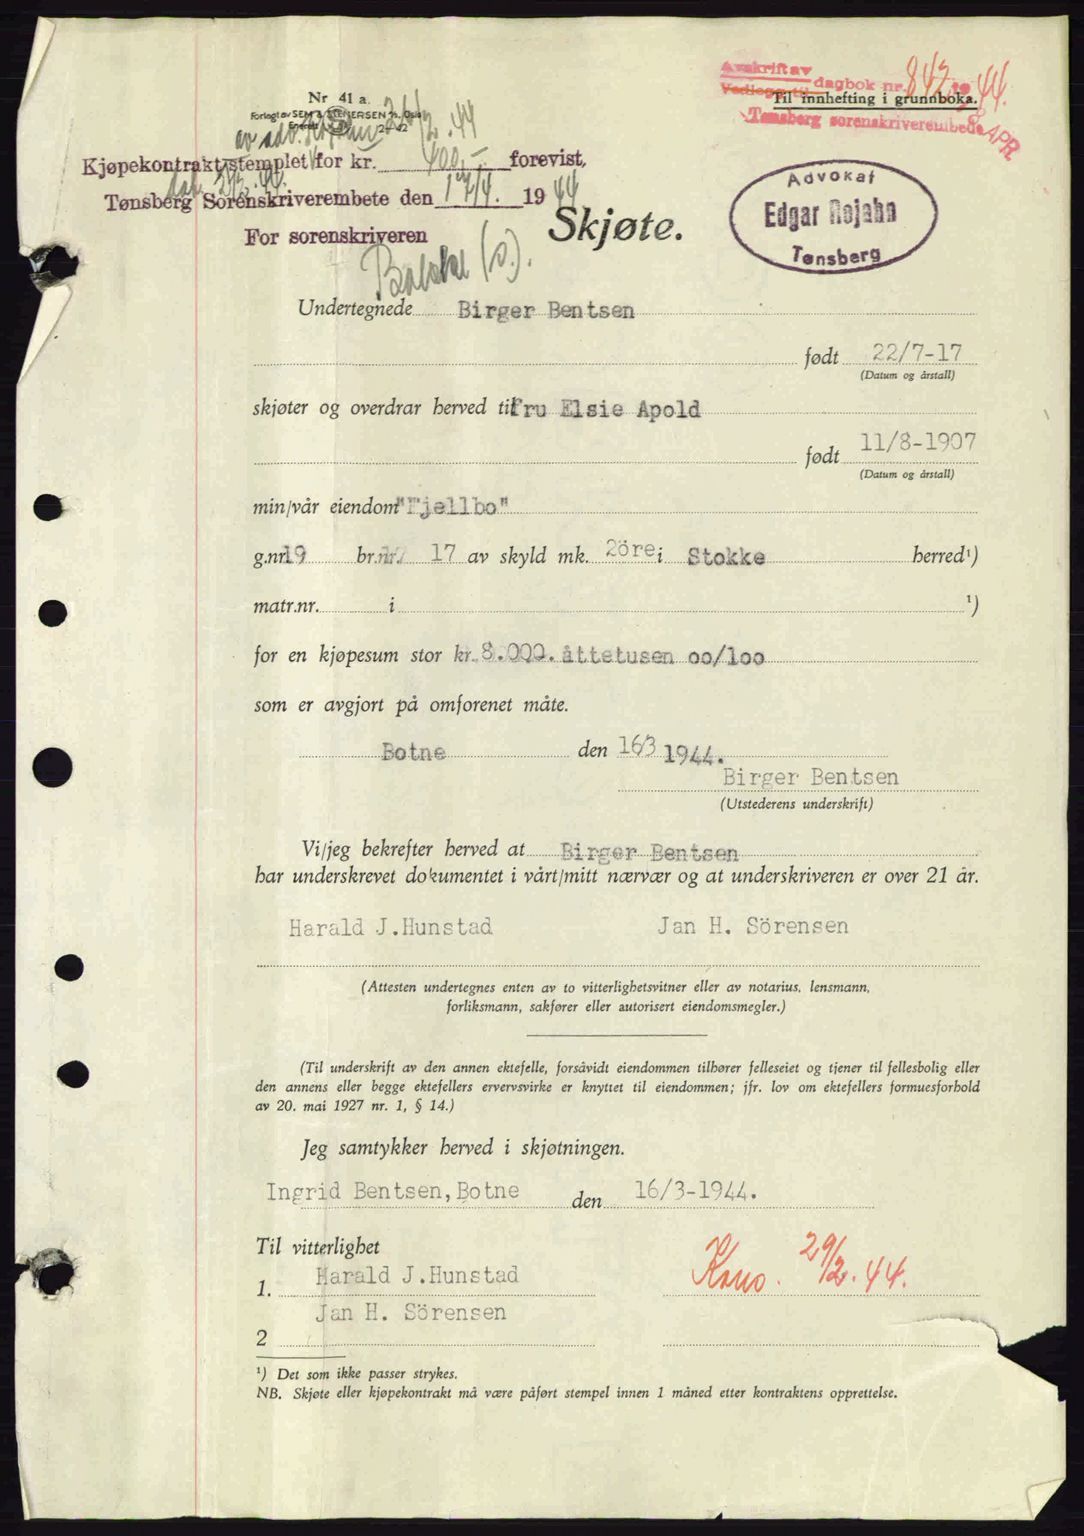 Avskrift av
Vedlegg til dagbok nr. 842 1944.
Til innhefting i grunnboka.
Tønsberg sorenskriverembede
APR
Nr 41 a.
Forlagt av SEM & STENERSEN A/s, Oslo
2-42
av adv.
26/2.44
Kjøpekontrakt stemplet for kr. 400,- forevist,
Tønsberg Sorenskriverembete den 17/4. 1944
For sorenskriveren
Advokat
Edgar Rojahn
Tønsberg
Skjøte.
Undertegnede Birger Bentsen
født 22/7-17
(Datum og årstall)
skjøter og overdrar herved til fru Elsie Apold
født 11/8-1907
(Datum og årstall)
min/vår eiendom "Fjellbo"
g.nr. 19 br.nr. 17 av skyld mk. 2öre i Stokke herred¹)
matr.nr. i ¹)
for en kjøpesum stor kr. 8.000. åttetusen oo/loo
som er avgjort på omforenet måte.
Botne den 16/3 1944.
Birger Bentsen
(Utstederens underskrift)
Vi/jeg bekrefter herved at Birger Bentsen
har underskrevet dokumentet i vårt/mitt nærvær og at underskriveren er over 21 år.
Harald J.Hunstad Jan H. Sörensen
(Attesten undertegnes enten av to vitterlighetsvitner eller av notarius, lensmann,
forliksmann, sakfører eller autorisert eiendomsmegler.)
(Til underskrift av den annen ektefelle, forsåvidt eiendommen tilhører felleseiet og tjener til fellesbolig eller
den annens eller begge ektefellers ervervsvirke er knyttet til eiendommen; jfr. lov om ektefellers formuesforhold
av 20. mai 1927 nr. 1, § 14.)
Jeg samtykker herved i skjøtningen.
Ingrid Bentsen, Botne den 16/3-1944.
Til vitterlighet
1. Harald J.Hunstad
Jan H. Sörensen
2
29/2.44.
¹) Det som ikke passer strykes.
NB. Skjøte eller kjøpekontrakt må være påført stempel innen 1 måned etter kontraktens opprettelse.